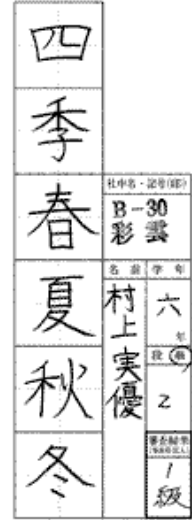 四季春夏秋冬
社中名・記号(部)
B-30
彩雲
名前
学年
村上実優
六年
段級
2
審査結果
1級